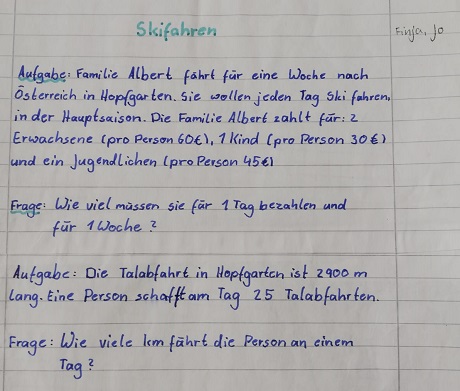 Skifahren
Finja, Jo
Aufgabe: Familie Albert fährt für eine Woche nach
Österreich in Hopfgarten. Sie wollen jeden Tag Ski fahren,
in der Hauptsaison. Die Familie Albert zahlt für: 2
Erwachsene (pro Person 60€), 1 Kind (pro Person 30€)
und ein Jugendlichen (pro Person 45€)
Frage: Wie viel müssen sie für 1 Tag bezahlen und
für 1 Woche?
Aufgabe: Die Talabfahrt in Hopfgarten ist 2900 m
lang. Eine Person schafft am Tag 25 Talabfahrten.
Frage: Wie viele km fährt die Person an einem
Tag?